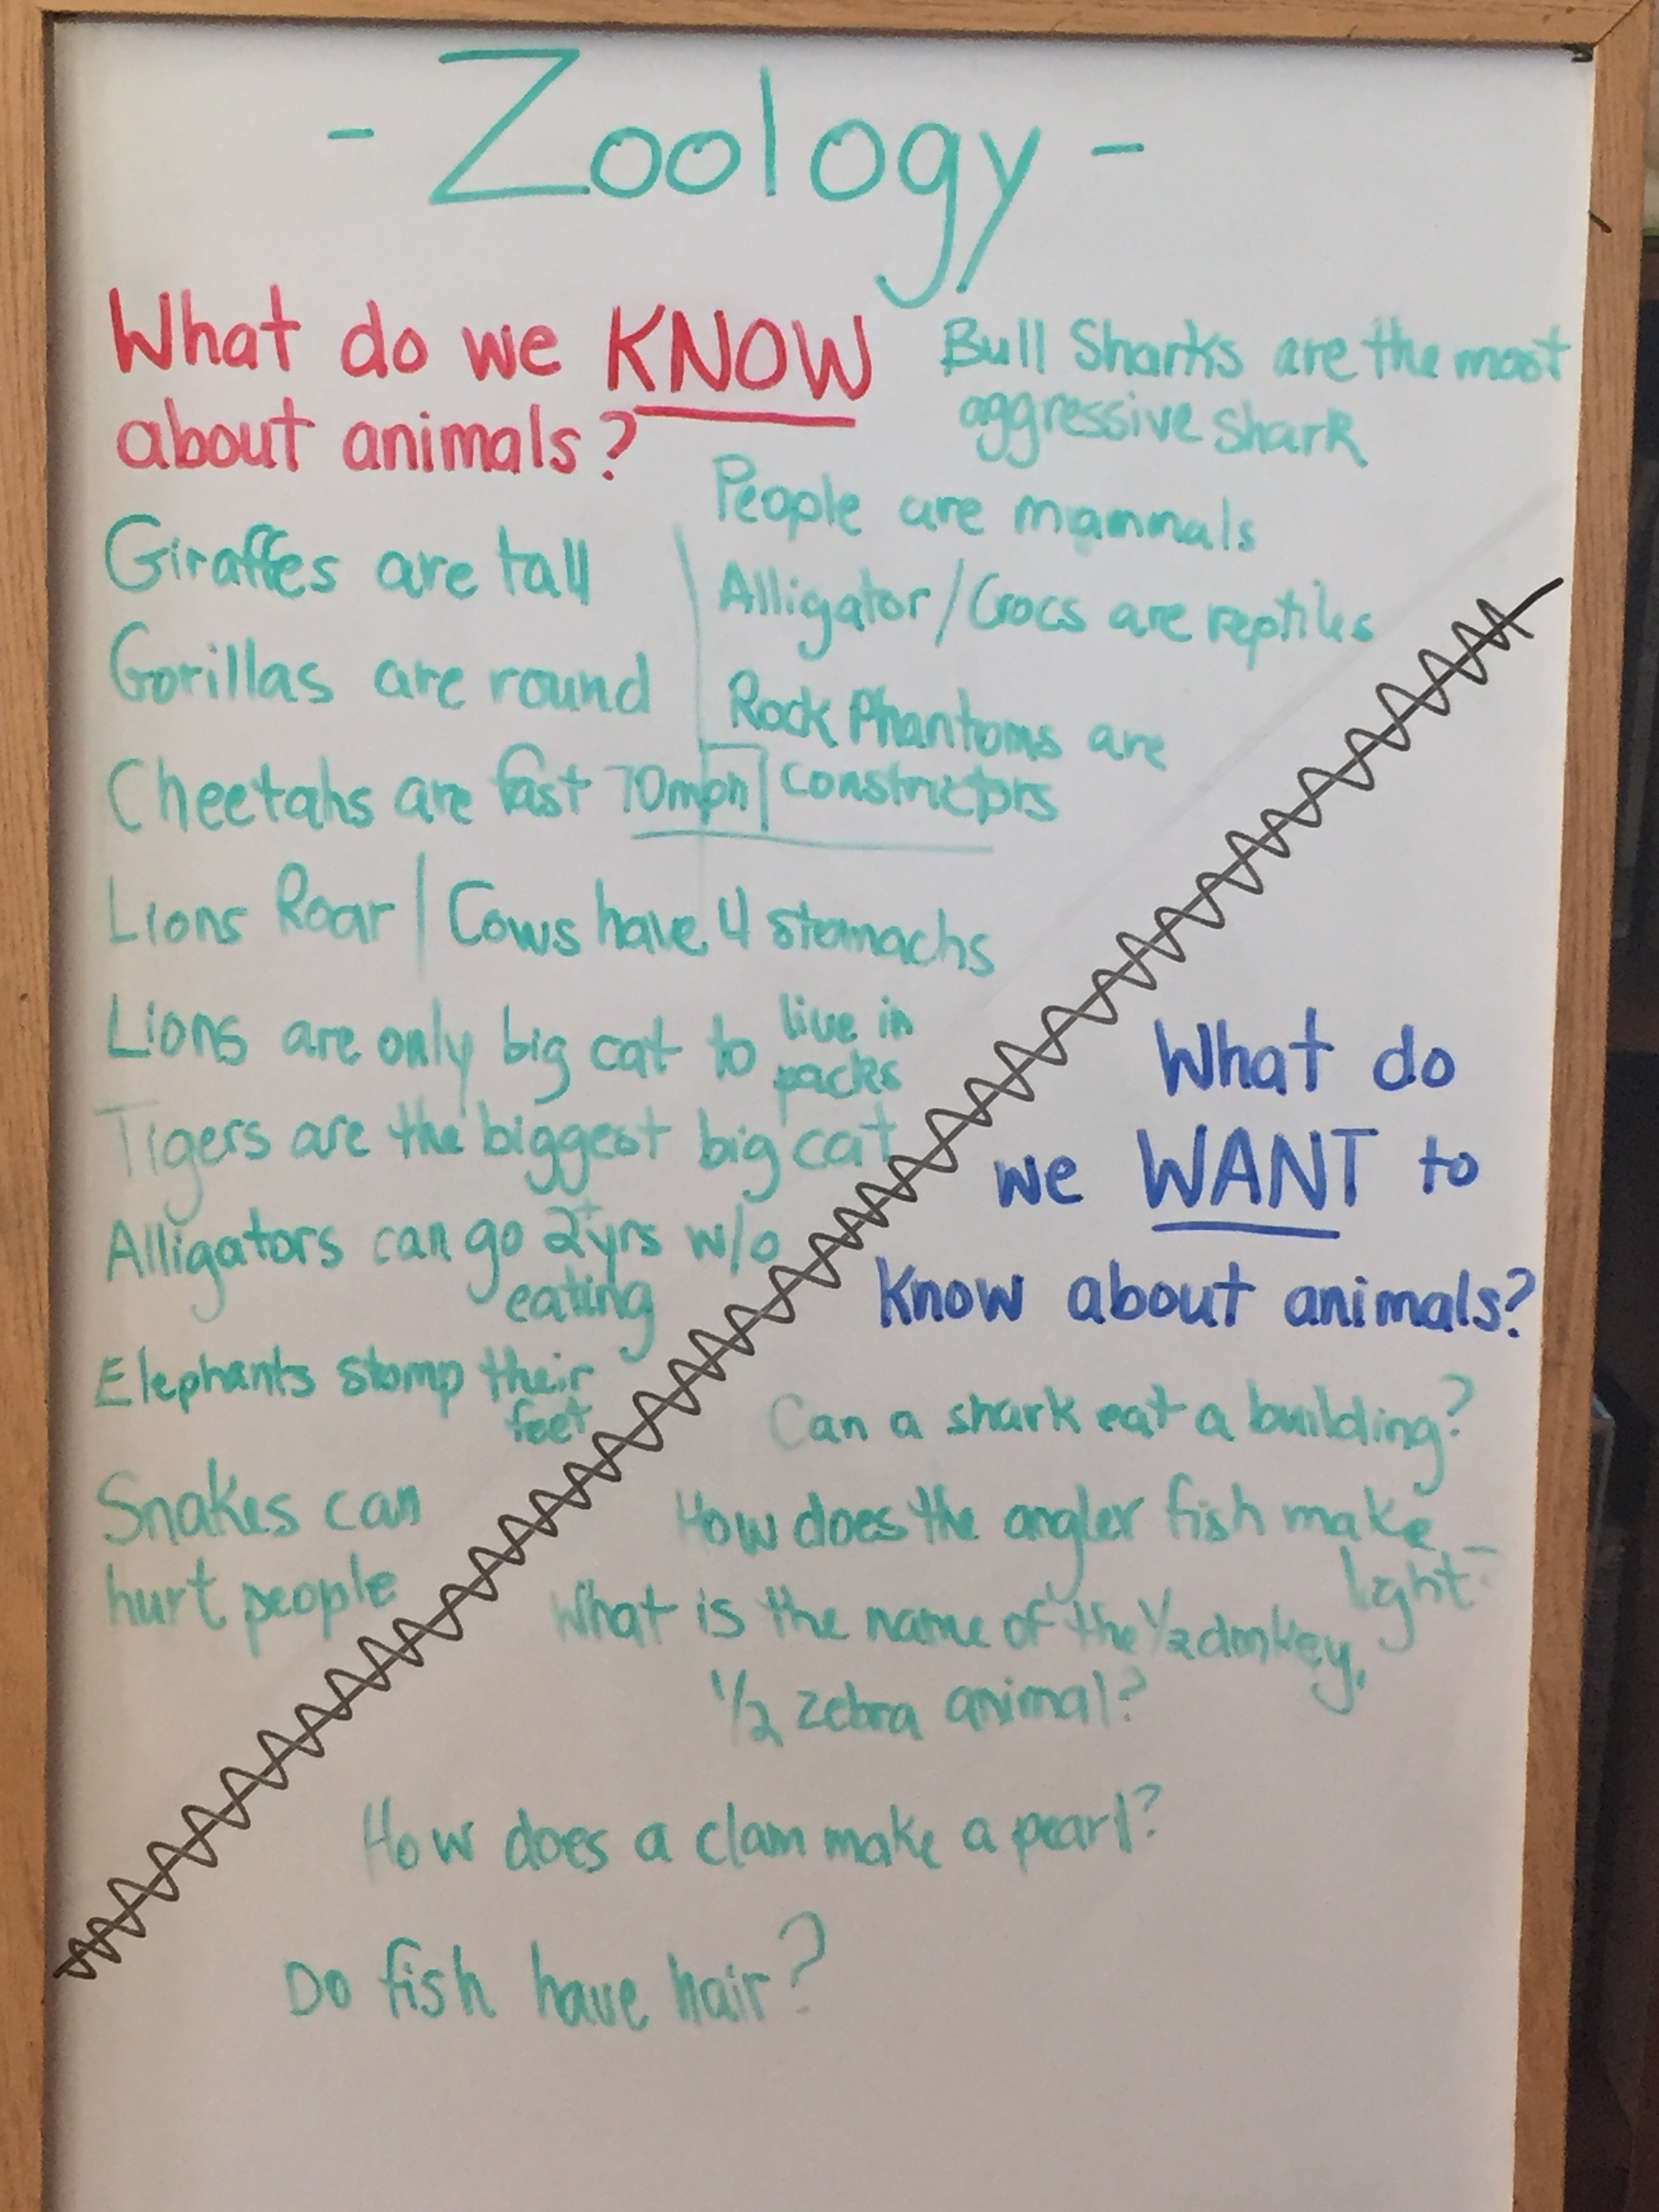 - Zoology -
What do we KNOW
about animals?
Bull Sharks are the most
aggressive shark
People are mammals
Alligator/Crocs are reptiles
Rock Phantoms are
constrictors
Giraffes are tall
Gorillas are round
Cheetahs are fast 70mph
Lions Roar | Cows have 4 stomachs
Lions are only big cat to live in
packs
Tigers are the biggest big cat
Alligators can go 2+yrs w/o
eating
Elephants stomp their
feet
Snakes can
hurt people
What do
we WANT to
Know about animals?
Can a shark eat a building?
How does the angler fish make
light?
What is the name of the 1/2 donkey,
1/2 zebra animal?
How does a clam make a pearl?
Do fish have hair?